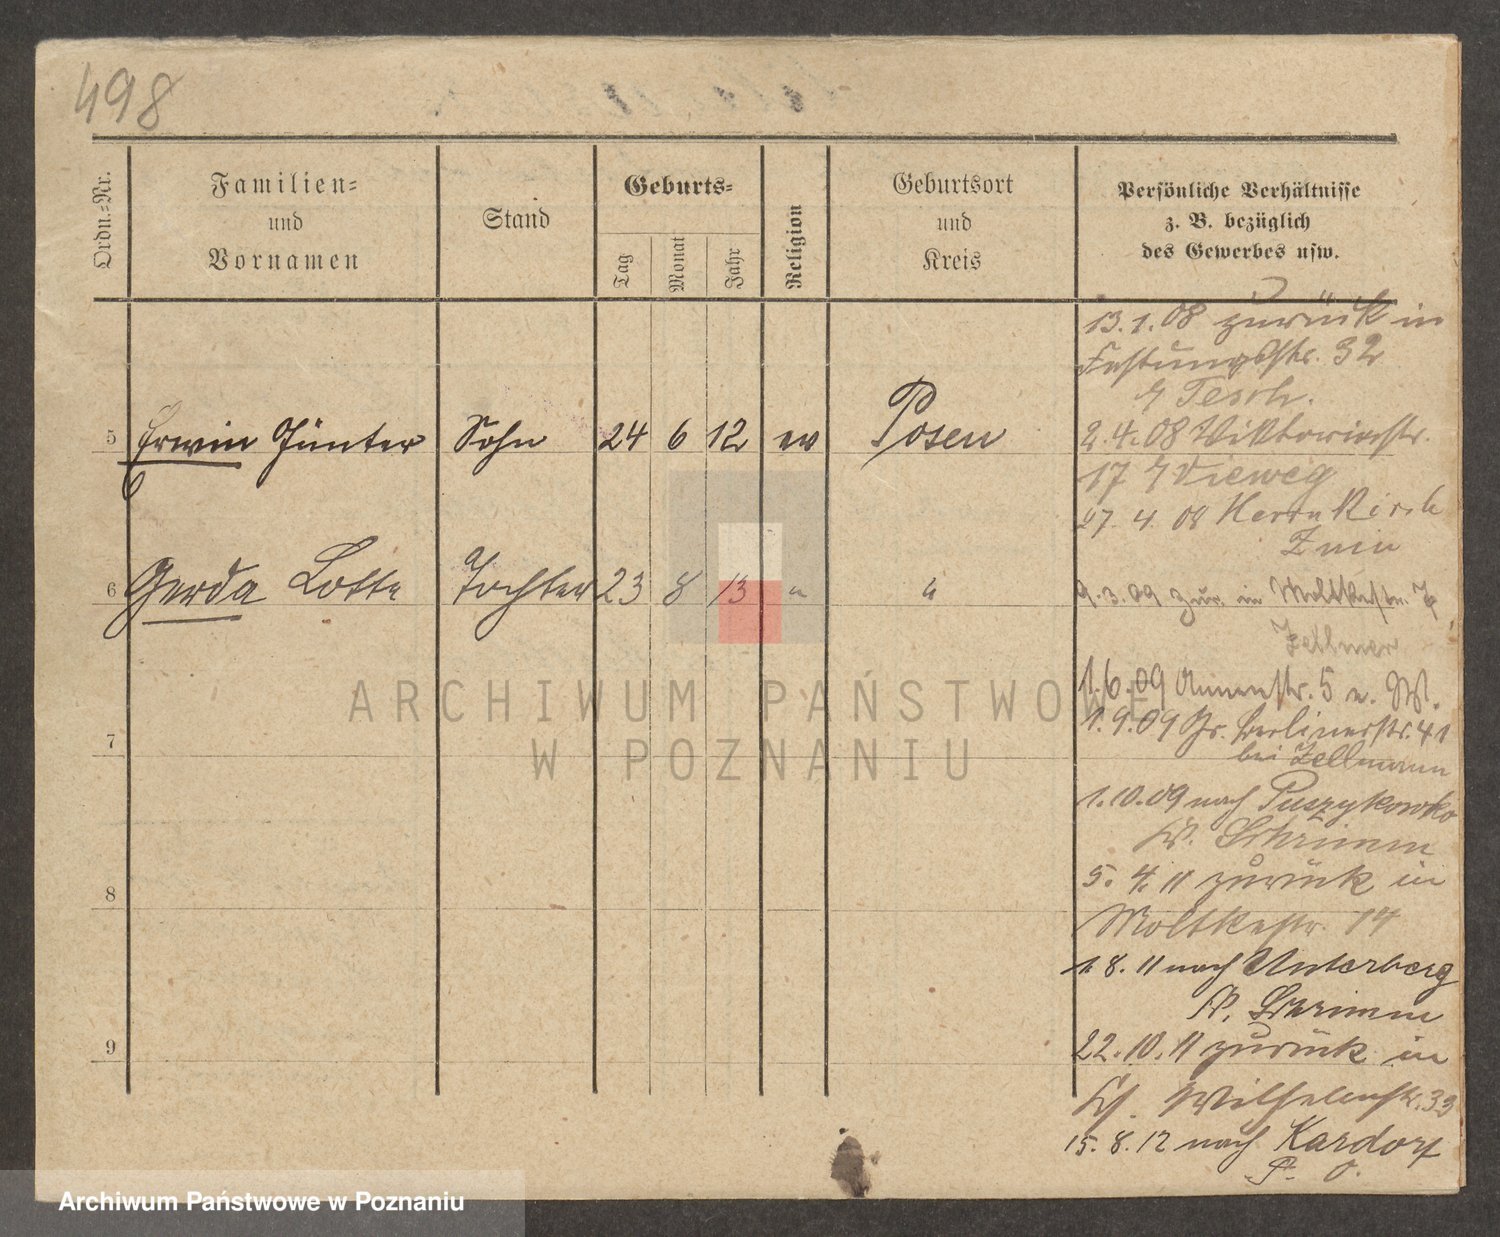 498
Ordn.-Nr.
Familien-
und
Vornamen
Stand
Geburts-
Tag
Monat
Jahr
Religion
Geburtsort
und
Kreis
Persönliche Verhältnisse
z. B. bezüglich
des Gewerbes usw.
13.1.08 zurück in
Festungsstr. 32
Tesch.
5 Erwin Günter Sohn 24 6 12 ev Posen
2.4.08 Viktoriastr.
17 Vieweg
27.4.08 Herrn Kirsch
Znin
6 Gerda Lotte Tochter 23 8 13 " "
9.3.09 zur. in Moltkestr. 7
Zellmer
1.6.09 Annenstr. 5 n. W.
1.9.09 Gr. Berlinerstr. 41
bei Zellmann
7
1.10.09 nach Puszykowko
Kr. Schrimm
5.4.11 zurück in
8
Moltkestr. 14
1.8.11 nach Unterberg
Kr. Schrimm
22.10.11 zurück in
9
Wilhelmstr. 33
15.8.12 nach Kardorf
P. O.
ARCHIWUM PAŃSTWOWE
W POZNANIU
Archiwum Państwowe w Poznaniu